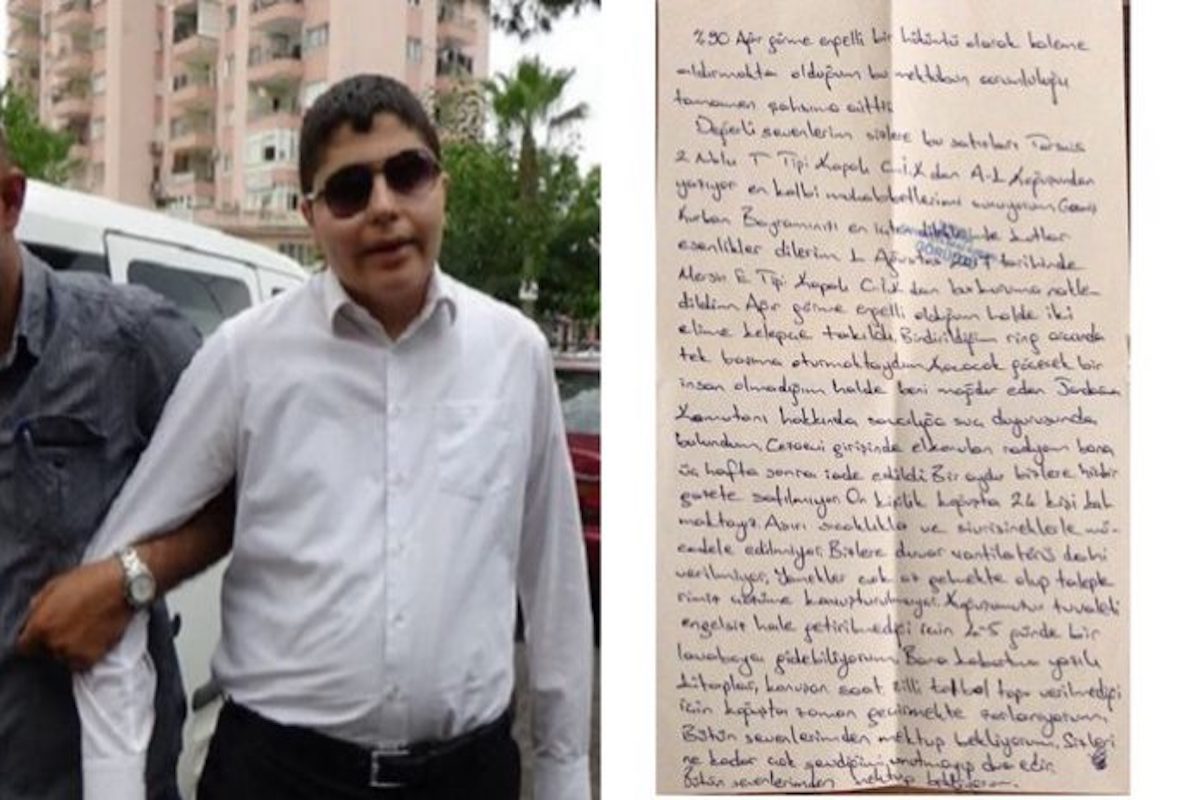 %90 Ağır görme engelli bir hükümlü olarak kaleme
aldırmakta olduğum bu mektubun sorumluluğu
tamamen şahsıma aittir.
Değerli sevenlerim sizlere bu satırları Tarsus
2 Nolu T Tipi Kapalı C.İ.K dan A-1 Koğuşundan
yazıyor en kalbi muhabbetlerimi sunuyorum Geçmiş
Kurban Bayramınızı en içten kutlar
esenlikler dilerim 1 Ağustos tarihinde
Mersin E Tipi Kapalı C.İ.K dan bu kuruma nakle
dildim Ağır görme engelli olduğum halde iki
elime kelepçe takıldı. Bindirildiğim ring aracında
tek başıma oturmaktaydım Kaçacak göçecek bir
insan olmadığım halde beni mağdur eden Jandarma
Komutanı hakkında savcılığa suç duyurusunda
bulundum. Cezaevi girişinde elkonulan radyom bana
üç hafta sonra iade edildi Bir aydır bizlere hiçbir
gazete satılmıyor. On kişilik koğuşta 24 kişi kal
maktayız. Aşırı sıcaklıkla ve sivrisineklerle mü-
cadele edilmiyor. Bizlere duvar vantilatörü dahi
verilmiyor. Yemekler çok az gelmekte olup talaple
rimiz üstüne konuşturulmuyor. Koğuşumuzun tuvaleti
engelsiz hale getirilmediği için 4-5 günde bir
lavaboya gidebiliyorum. Bana kabartma yazılı
kitaplar, konuşan saat zilli futbol topu verilmediği
için koğuşta zaman geçirmekte zorlanıyorum.
Bütün sevenlerimden mektup bekliyorum. Sizleri
ne kadar çok sevdiğimi unutmayıp dua edin.
Bütün sevenlerimden mektup bekliyorum.
GÖRÜLDÜ